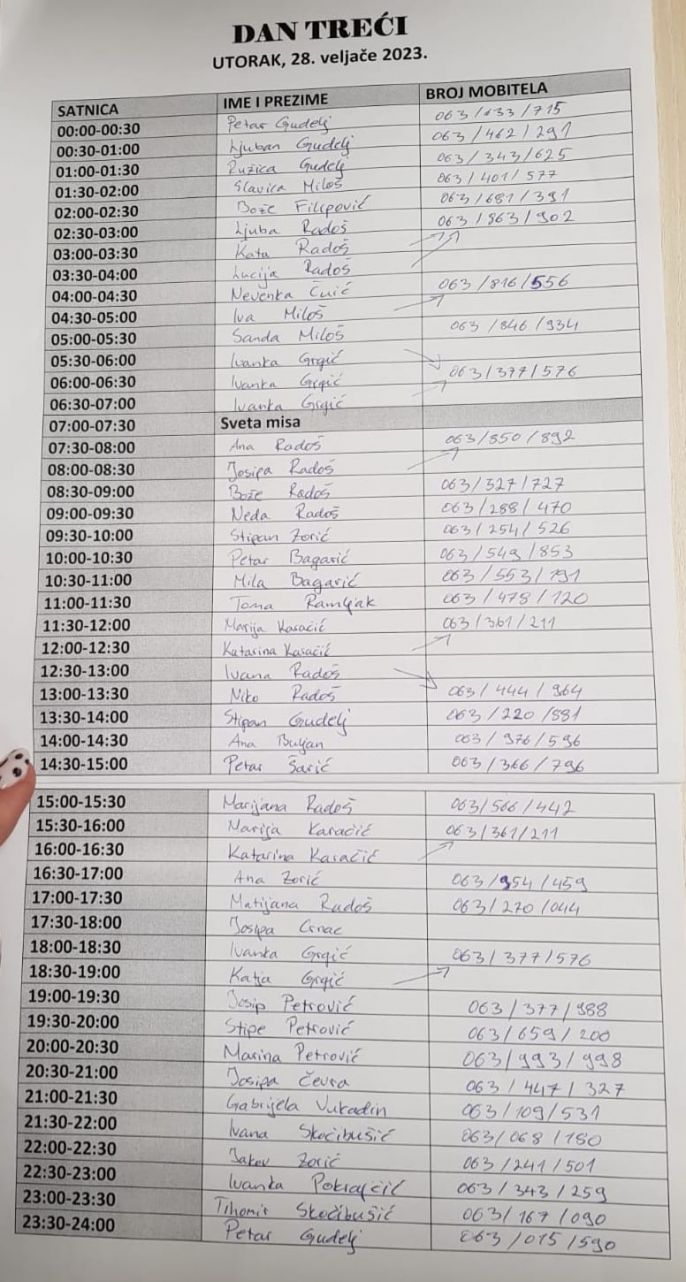 DAN TREĆI
UTORAK, 28. veljače 2023.
SATNICA IME I PREZIME BROJ MOBITELA
00:00-00:30 Petar Gudelj 063/633/715
00:30-01:00 Ljuban Gudelj 063/462/291
01:00-01:30 Ružica Gudelj 063/343/625
01:30-02:00 Slavica Miloš 063/401/577
02:00-02:30 Bože Filipović 063/681/391
02:30-03:00 Ljuba Radoš 063/863/902
03:00-03:30 Kata Radoš
03:30-04:00 Lucija Radoš
04:00-04:30 Nevenka Čuić 063/816/556
04:30-05:00 Iva Miloš
05:00-05:30 Sanda Miloš 063/846/934
05:30-06:00 Ivanka Grgić
06:00-06:30 Ivanka Grgić 063/377/576
06:30-07:00 Ivanka Grgić
07:00-07:30 Sveta misa
07:30-08:00 Ana Radoš 063/850/892
08:00-08:30 Josipa Radoš
08:30-09:00 Bože Radoš 063/327/727
09:00-09:30 Neda Radoš 063/288/470
09:30-10:00 Stipan Zorić 063/254/526
10:00-10:30 Petar Bagarić 063/549/853
10:30-11:00 Mila Bagarić 063/553/191
11:00-11:30 Toma Ramljak 063/478/120
11:30-12:00 Marija Karačić 063/361/211
12:00-12:30 Katarina Karačić
12:30-13:00 Ivana Radoš
13:00-13:30 Niko Radoš 063/444/964
13:30-14:00 Stipan Gudelj 063/220/881
14:00-14:30 Ana Buljan 063/976/596
14:30-15:00 Petar Šarić 063/366/796
15:00-15:30 Marijana Radoš 063/566/442
15:30-16:00 Marija Karačić 063/361/211
16:00-16:30 Katarina Karačić
16:30-17:00 Ana Zorić 063/954/459
17:00-17:30 Matijana Radoš 063/270/044
17:30-18:00 Josipa Crnac
18:00-18:30 Ivanka Grgić 063/377/576
18:30-19:00 Katja Grgić
19:00-19:30 Josip Petrović 063/377/988
19:30-20:00 Stipe Petrović 063/659/200
20:00-20:30 Marina Petrović 063/993/998
20:30-21:00 Josipa Čevra 063/447/327
21:00-21:30 Gabrijela Vukadin 063/109/531
21:30-22:00 Ivana Skočibušić 063/068/180
22:00-22:30 Jakov Zorić 063/241/501
22:30-23:00 Ivanka Pokrajčić 063/343/259
23:00-23:30 Tihomir Skočibušić 063/167/090
23:30-24:00 Petar Gudelj 063/015/590